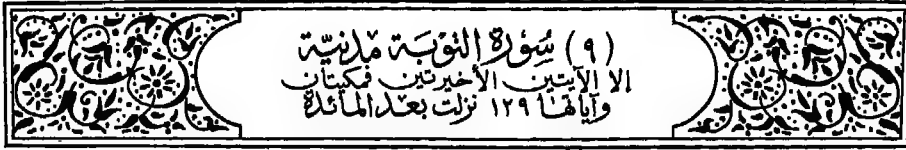 (٩) سُوْرَة التوْبَة مَدنِيَّة
إلا الآيتين الأخيرتين فمكيتان
وآياتها ١٢٩ نزلت بعد المائدة